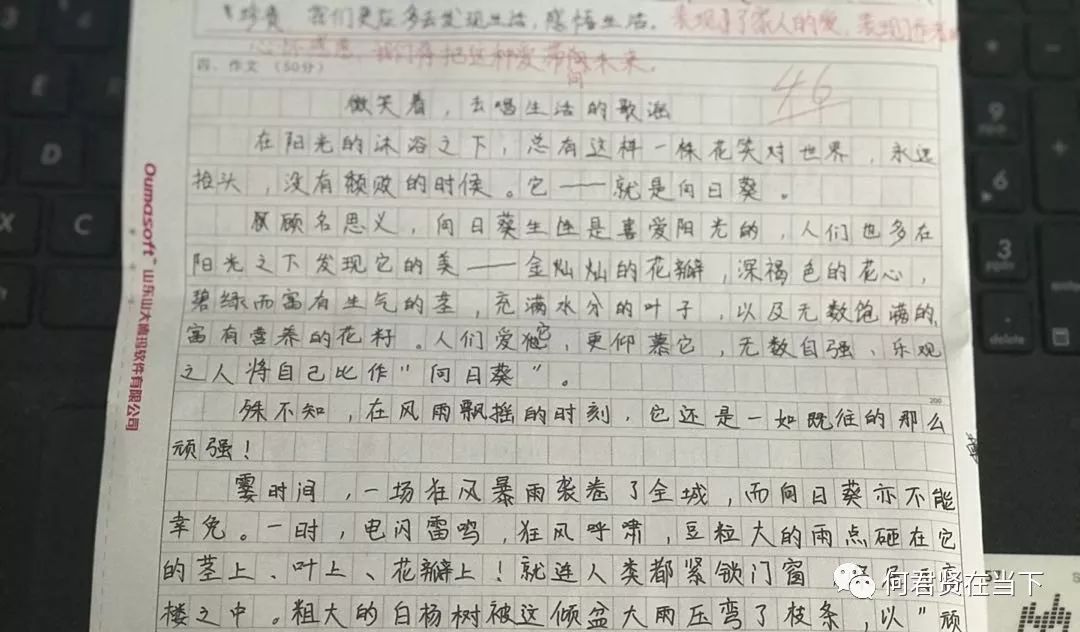 珍贵 我们更应多去发现生活,感悟生活。表现了家人的爱,表现作者
心怀感恩,我们要把这种爱带向未来。
四、作文(50分)
46
微笑着,去唱生活的歌谣
在阳光的沐浴之下,总有这样一株花笑对世界,永远
抬头,没有颓败的时候。它——就是向日葵。
顾名思义,向日葵生性是喜爱阳光的,人们也多在
阳光之下发现它的美——金灿灿的花瓣,深褐色的花心,
碧绿而富有生气的茎,充满水分的叶子,以及无数饱满的,
富有营养的花籽。人们爱它,更仰慕它,无数自强、乐观
之人将自己比作"向日葵"。
200
殊不知,在风雨飘摇的时刻,它还是一如既往的那么
顽强!
霎时间,一场狂风暴雨袭卷了全城,而向日葵亦不能
幸免。一时,电闪雷鸣,狂风呼啸,豆粒大的雨点砸在它
的茎上、叶上、花瓣上!就连人类都紧锁门窗
楼之中。粗大的白杨树被这倾盆大雨压弯了枝条,以"顽
Oumasoft 山东山大鸥玛软件有限公司
何君贤在当下
E
D
X
C
9
6
3
delete